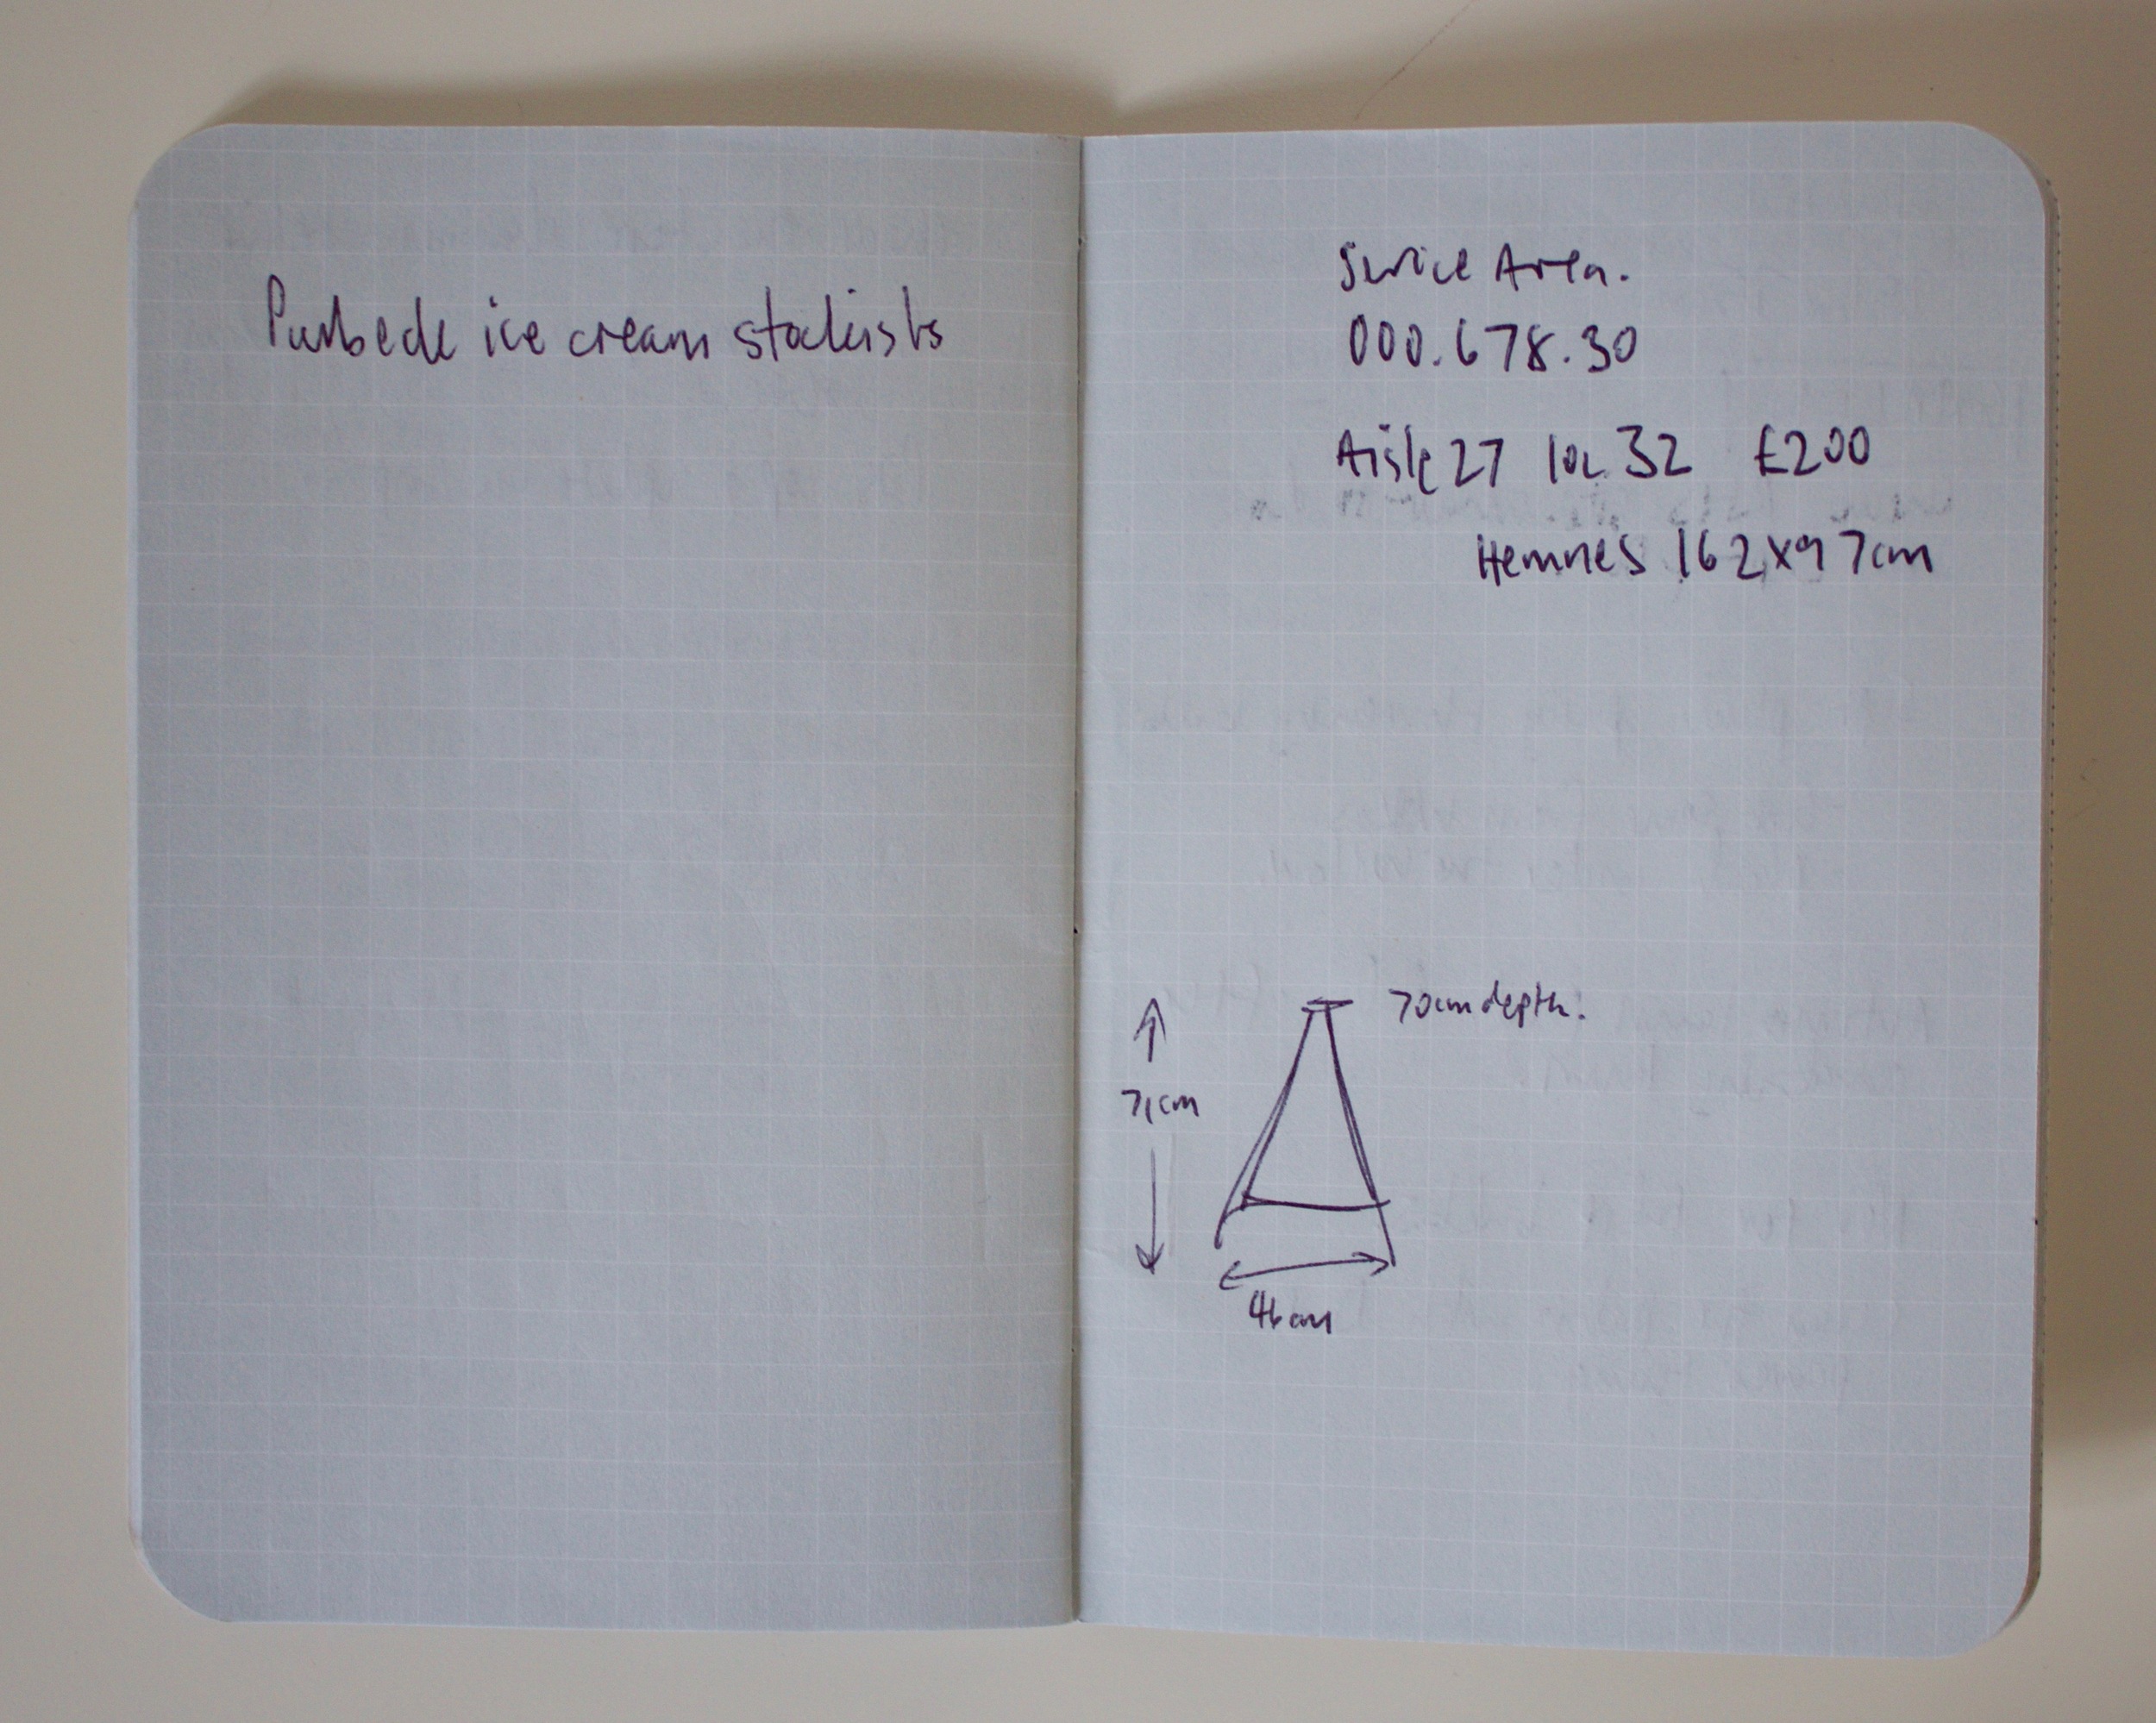 Purbeck ice cream stockists
Service Area.
000.678.30
Aisle 27 loc 32 £200
Hemnes 162x97cm
70cm depth!
71cm
46cm